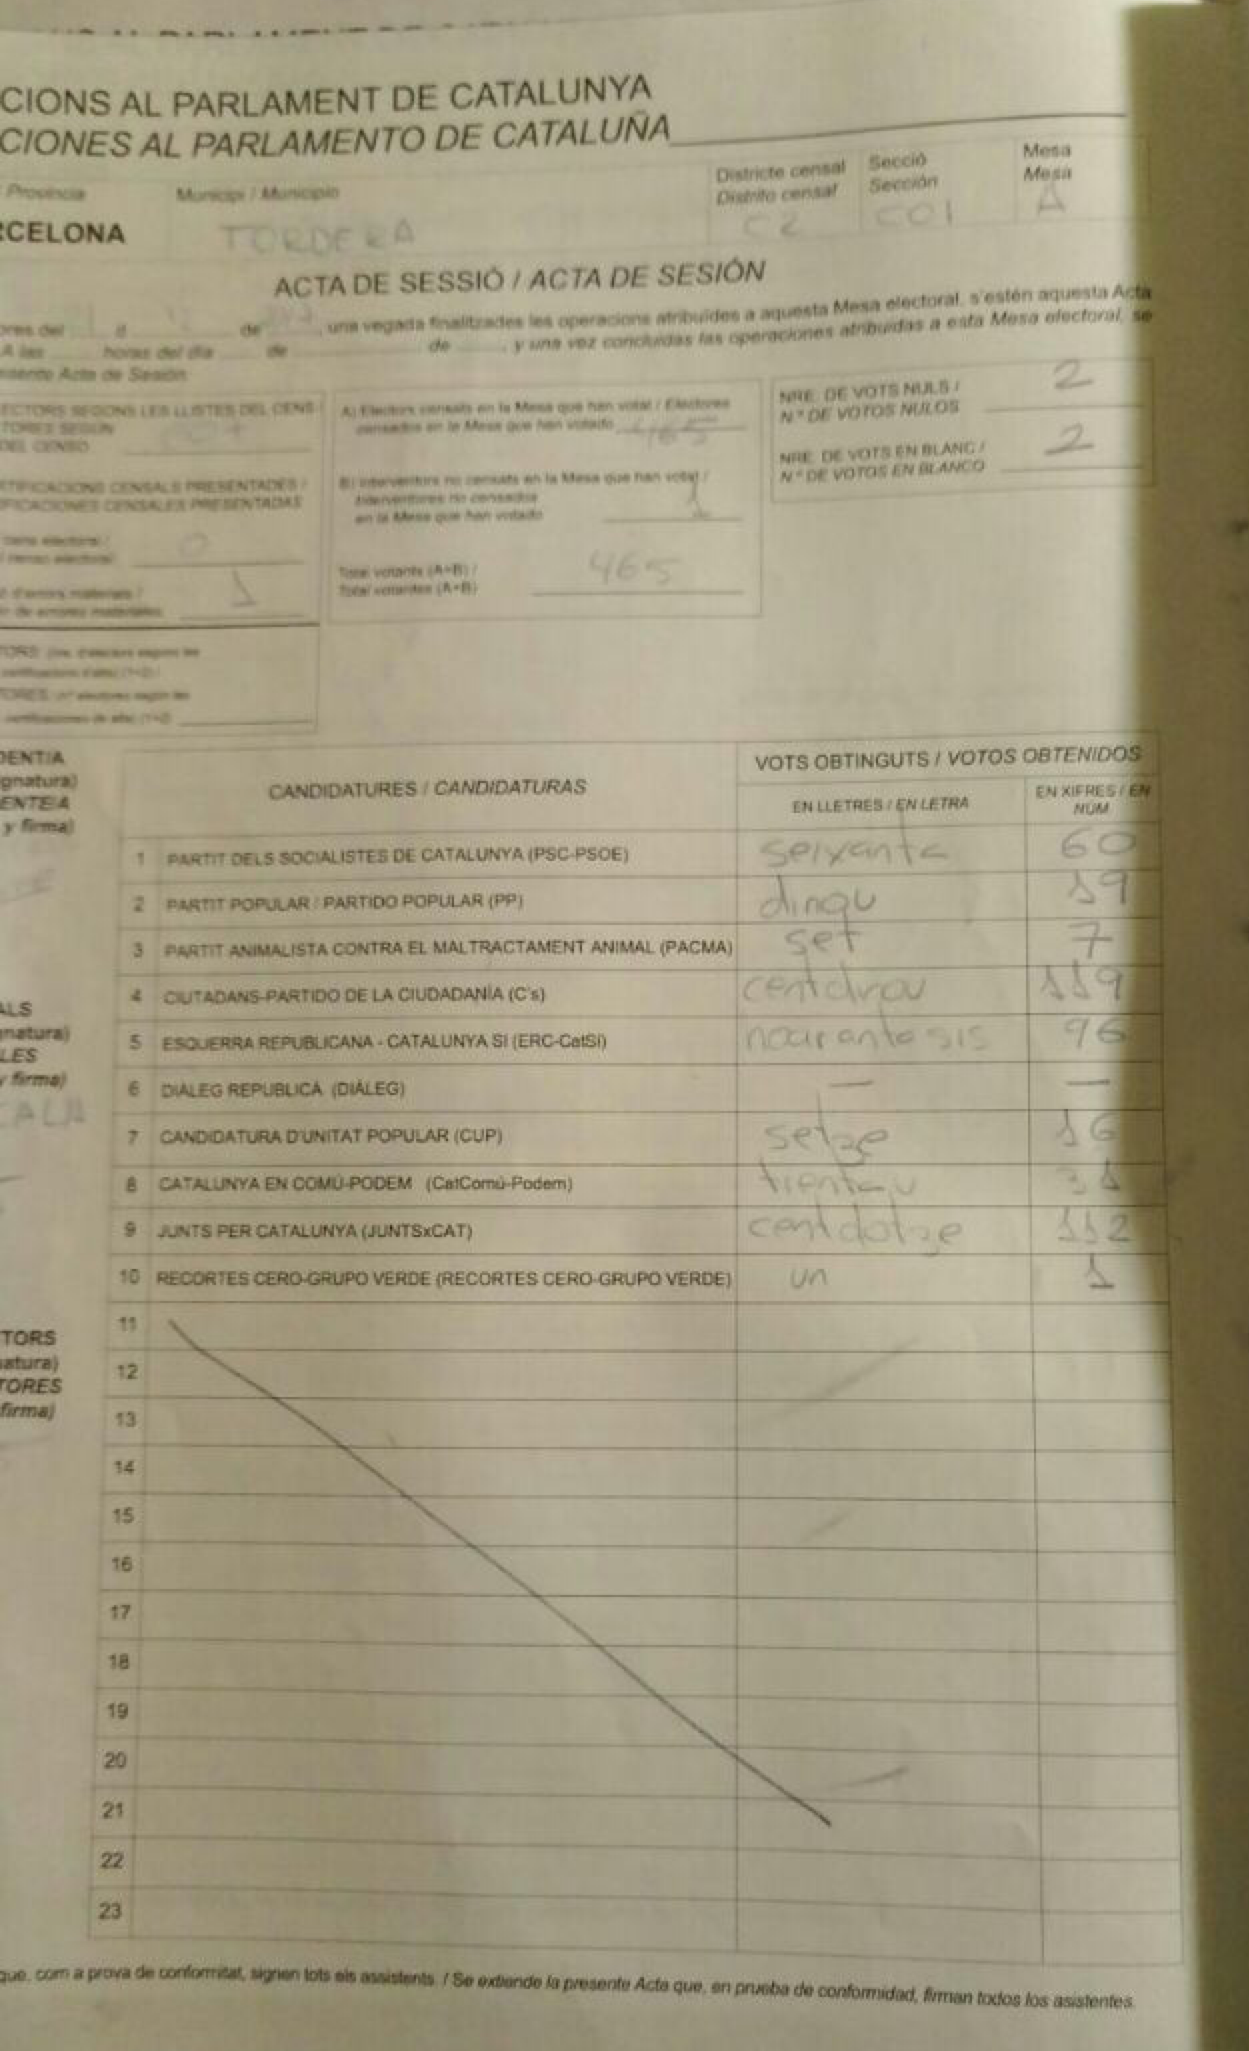 CIONS AL PARLAMENT DE CATALUNYA
CIONES AL PARLAMENTO DE CATALUÑA
Provincia Municipi / Municipio Districte censal Secció Mesa
Distrito censal Sección Mesa
RCELONA TORDERA C2 C01 A
ACTA DE SESSIÓ / ACTA DE SESIÓN
ores del d de , una vegada finalitzades les operacions atribuïdes a aquesta Mesa electoral, s'estén aquesta Acta
A las horas del día de de , y una vez concluidas las operaciones atribuidas a esta Mesa electoral, se
Acta de Sesión
ECTORS SEGONS LES LLISTES DEL CENS
TORES SEGÚN
DEL CENSO
TIFICACIONS CENSALS PRESENTADES /
IFICACIONES CENSALES PRESENTADAS
cens electoral /
censo electoral 0
d'errors materials / 1
de errores materiales
A) Electors censats en la Mesa que han votat / Electores
censados en la Mesa que han votado
B) Interventors no censats en la Mesa que han votat /
Interventores no censados
en la Mesa que han votado 1
Total votants (A+B) / 465
Total votantes (A+B)
NRE. DE VOTS NULS / 2
N.º DE VOTOS NULOS
NRE. DE VOTS EN BLANC / 2
N.º DE VOTOS EN BLANCO
DENT/A
gnatura)
ENTE/A
y firma)
ALS
natura)
LES
y firma)
CALA
TORS
atura)
TORES
firma)
CANDIDATURES / CANDIDATURAS VOTS OBTINGUTS / VOTOS OBTENIDOS
EN LLETRES / EN LETRA EN XIFRES / EN NÚM.
1 PARTIT DELS SOCIALISTES DE CATALUNYA (PSC-PSOE) seixanta 60
2 PARTIT POPULAR / PARTIDO POPULAR (PP) dinou 19
3 PARTIT ANIMALISTA CONTRA EL MALTRACTAMENT ANIMAL (PACMA) set 7
4 CIUTADANS-PARTIDO DE LA CIUDADANÍA (C's) cent dinou 119
5 ESQUERRA REPUBLICANA - CATALUNYA SÍ (ERC-CatSí) noaranta sis 96
6 DIÀLEG REPUBLICÀ (DIÀLEG) — —
7 CANDIDATURA D'UNITAT POPULAR (CUP) setze 16
8 CATALUNYA EN COMÚ-PODEM (CatComú-Podem) trenta u 31
9 JUNTS PER CATALUNYA (JUNTSxCAT) cent dotze 112
10 RECORTES CERO-GRUPO VERDE (RECORTES CERO-GRUPO VERDE) un 1
11
12
13
14
15
16
17
18
19
20
21
22
23
que, com a prova de conformitat, signen tots els assistents. / Se extiende la presente Acta que, en prueba de conformidad, firman todos los asistentes.